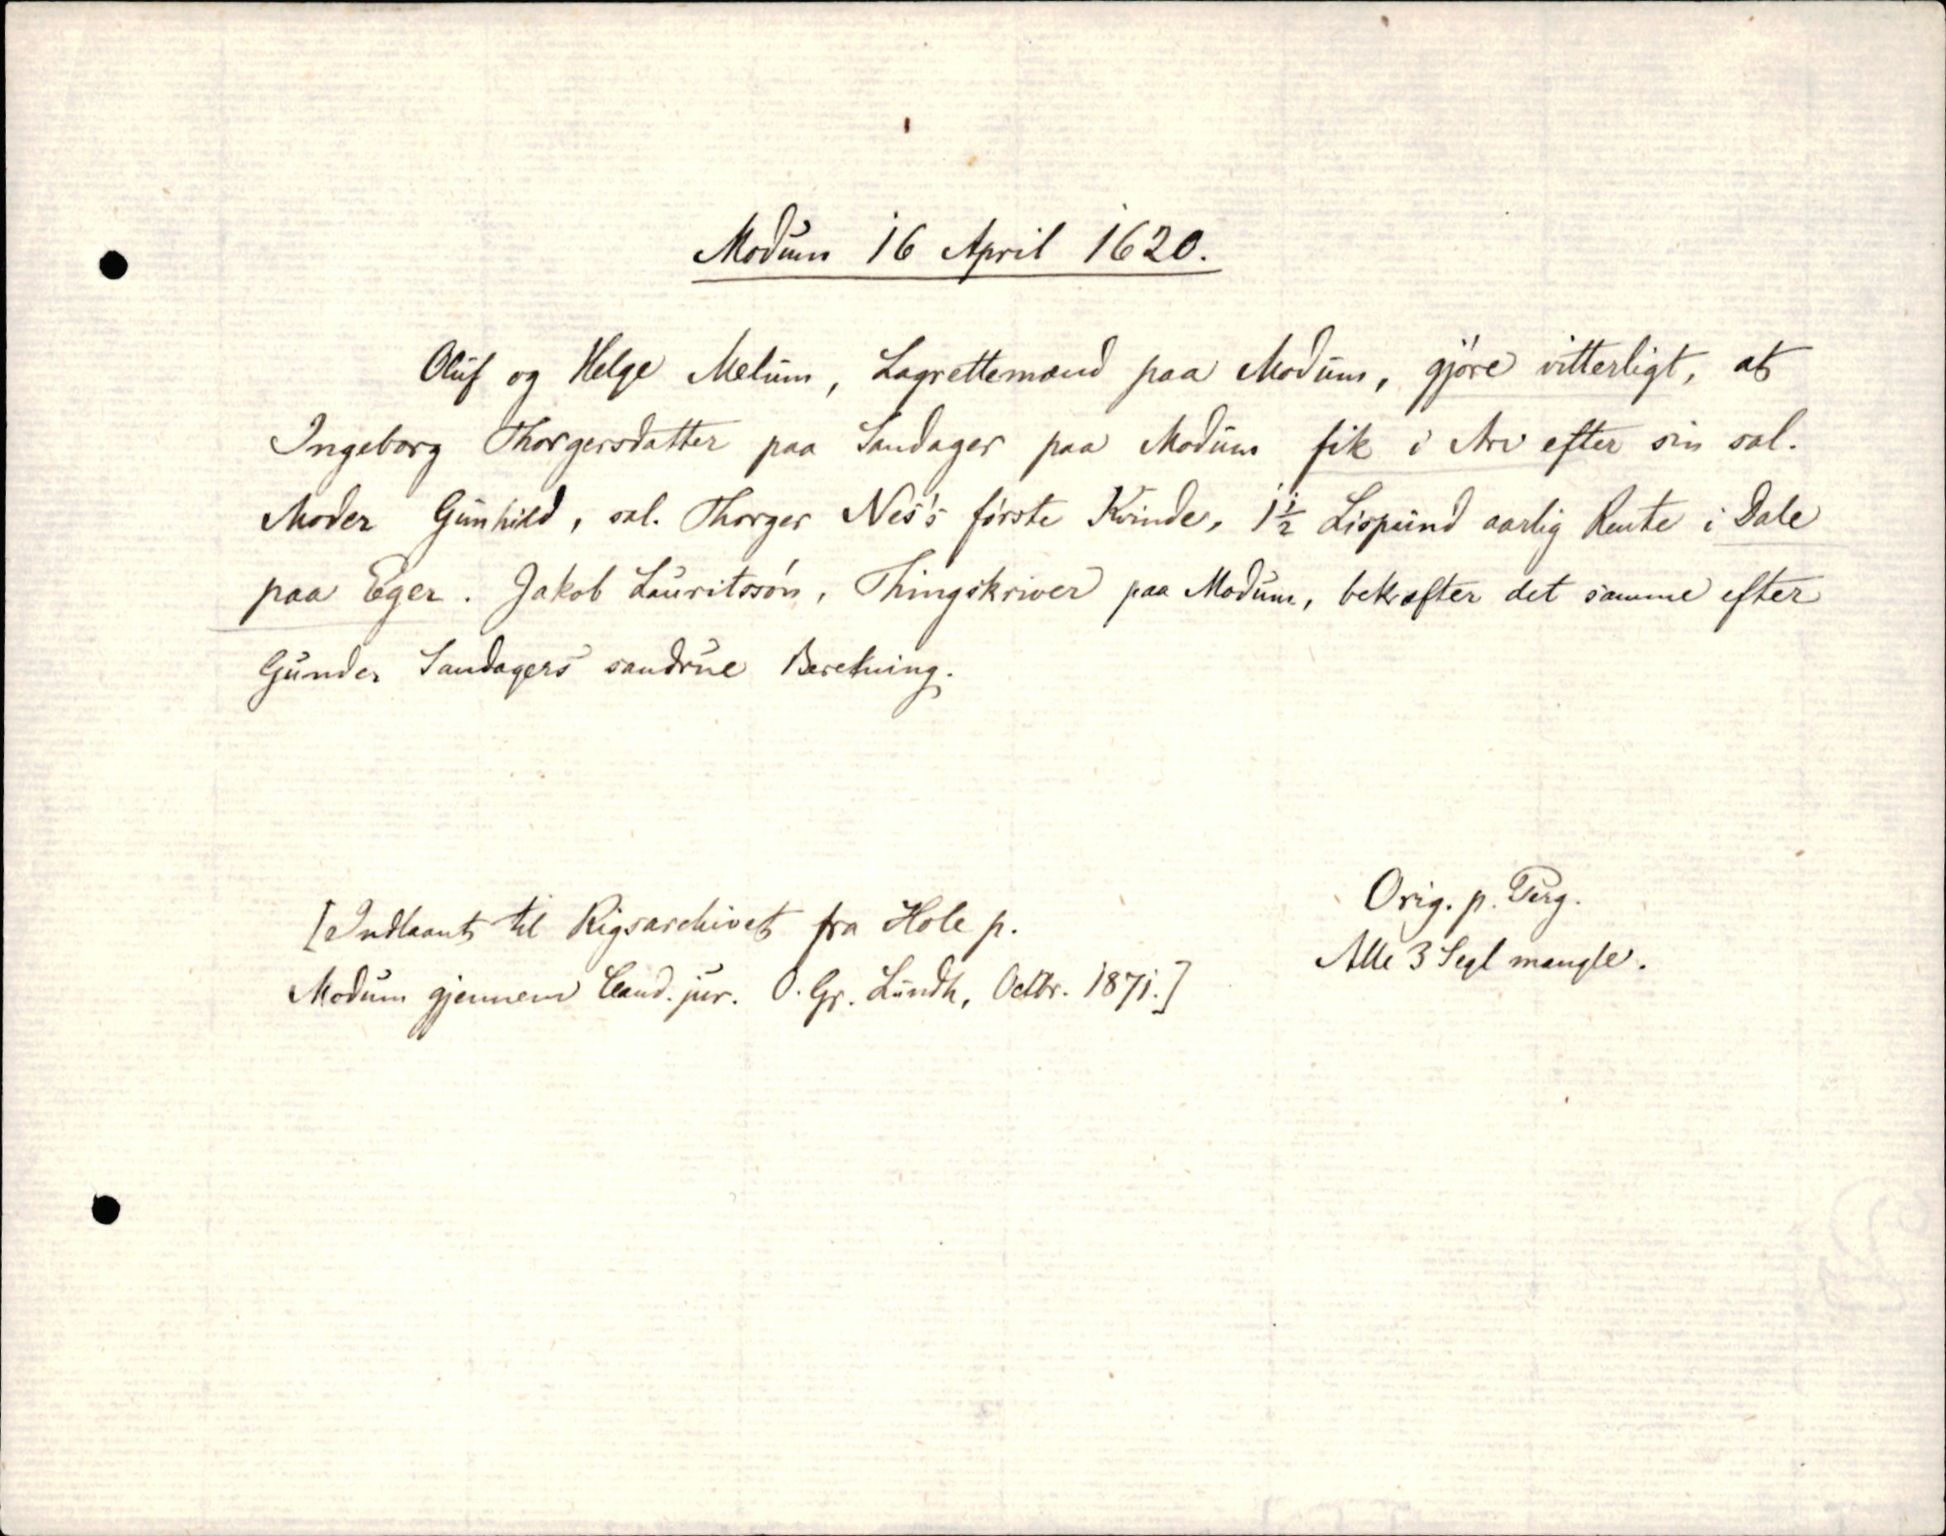 Modum 16 April 1620.
Oluf og Helge Melum, Lagrettemænd paa Modum, gjöre vitterligt, at
Ingeborg Thorgersdatter paa Sandager paa Modum fik i Arv efter sin sal.
Moder Gunhild, sal. Thorger Nes's förste Kvinde, 1 1/2 Lispund aarlig Rente i Dale
paa Eger. Jakob Lauritssön, Thingskriver paa Modum, bekræfter det samme efter
Gunder Sandagers sandrue Beretning.
[Indlaant til Rigsarchivet fra Hole p.
Modum gjennem Cand. jur. O. Gr. Lundh, Octbr. 1871.]
Orig. p. Perg.
Alle 3 Segl mangle.